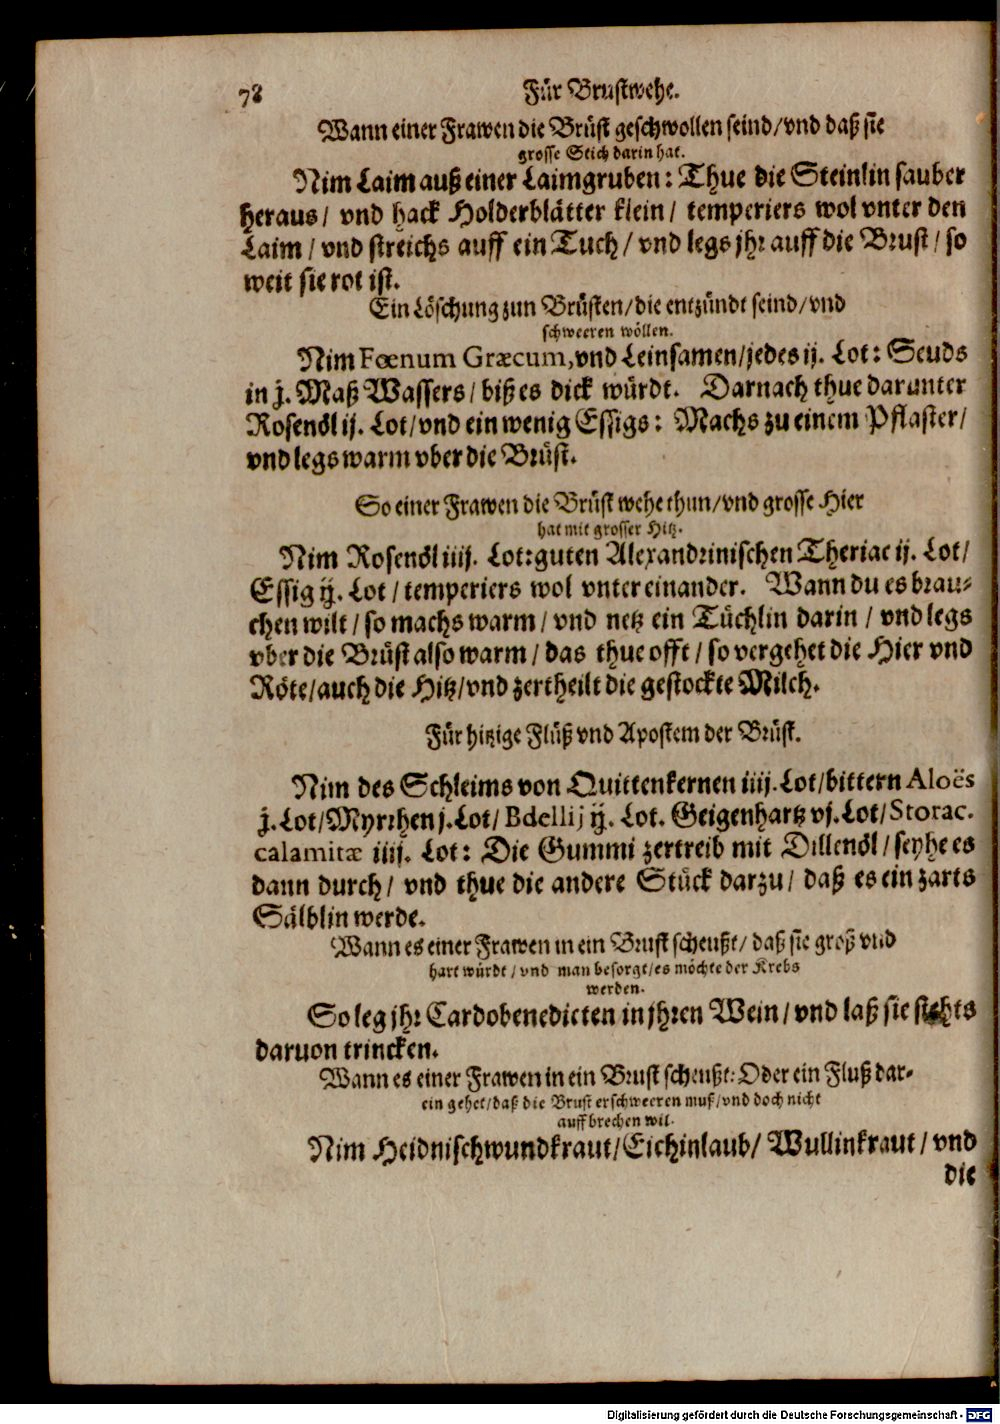 78
Für Brustwehe.
Wann einer Frawen die Brüst geschwollen seind/ vnd daß sie
grosse Stich darin hat.
Nim Laim auß einer Laimgruben: Thue die Steinlin sauber
heraus/ vnd hack Holderblätter klein/ temperiers wol vnter den
Laim/ vnd streichs auff ein Tuch/ vnd legs jhr auff die Brust/ so
weit sie rot ist.
Ein Löschung zun Brüsten/ die entzündt seind/ vnd
schweeren wöllen.
Nim Fœnum Græcum, vnd Leinsamen/ jedes ij. Lot: Seuds
in j. Maß Wassers/ biß es dick würdt. Darnach thue darunter
Rosenöl ij. Lot/ vnd ein wenig Essigs: Machs zu einem Pflaster/
vnd legs warm vber die Brüst.
So einer Frawen die Brüst wehe thun/ vnd grosse Hier
hat mit grosser Hitz.
Nim Rosenöl iiij. Lot: guten Alexandrinischen Theriac ij. Lot/
Essig ij. Lot/ temperiers wol vntereinander. Wann du es brau-
chen wilt/ so machs warm/ vnd netz ein Tüchlin darin/ vnd legs
vber die Brüst also warm/ das thue offt/ so vergehet die Hier vnd
Röte/ auch die Hitz/ vnd zertheilt die gestockte Milch.
Für hitzige Flüß vnd Apostem der Brüst.
Nim des Schleims von Quittenkernen iiij. Lot/ bittern Aloës
j. Lot/ Myrrhen j. Lot/ Bdellij ij. Lot. Geigenhartz vj. Lot/ Storac.
calamitæ iiij. Lot: Die Gummi zertreib mit Dillenöl/ seyhe es
dann durch/ vnd thue die andere Stück darzu/ daß es ein zarts
Sälblin werde.
Wann es einer Frawen in ein Brust scheußt/ daß sie groß vnd
hart würdt/ vnd man besorgt/ es möchte der Krebs
werden.
So leg jhr Cardobenedicten in jhren Wein/ vnd laß sie stehts
daruon trincken.
Wann es einer Frawen in ein Brust scheußt: Oder ein Fluß dar-
ein gehet/ daß die Brust erschweeren muß/ vnd doch nicht
auffbrechen wil.
Nim Heidnischwundkraut/ Eichinlaub/ Wullinkraut/ vnd
die
Digitalisierung gefördert durch die Deutsche Forschungsgemeinschaft - DFG